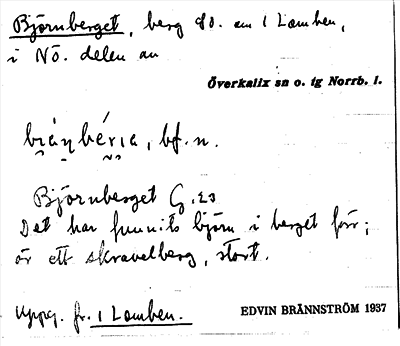 Björnberget, berg SO. om 1 Lomben,
i NÖ. delen av
Överkalix sn o. tg Norrb. l.
bf. n.
Björnberget G. 23
Det har funnits björn i berget förr;
är ett skravelberg, stort.
Uppg. fr. 1 Lomben.
EDVIN BRÄNNSTRÖM 1937